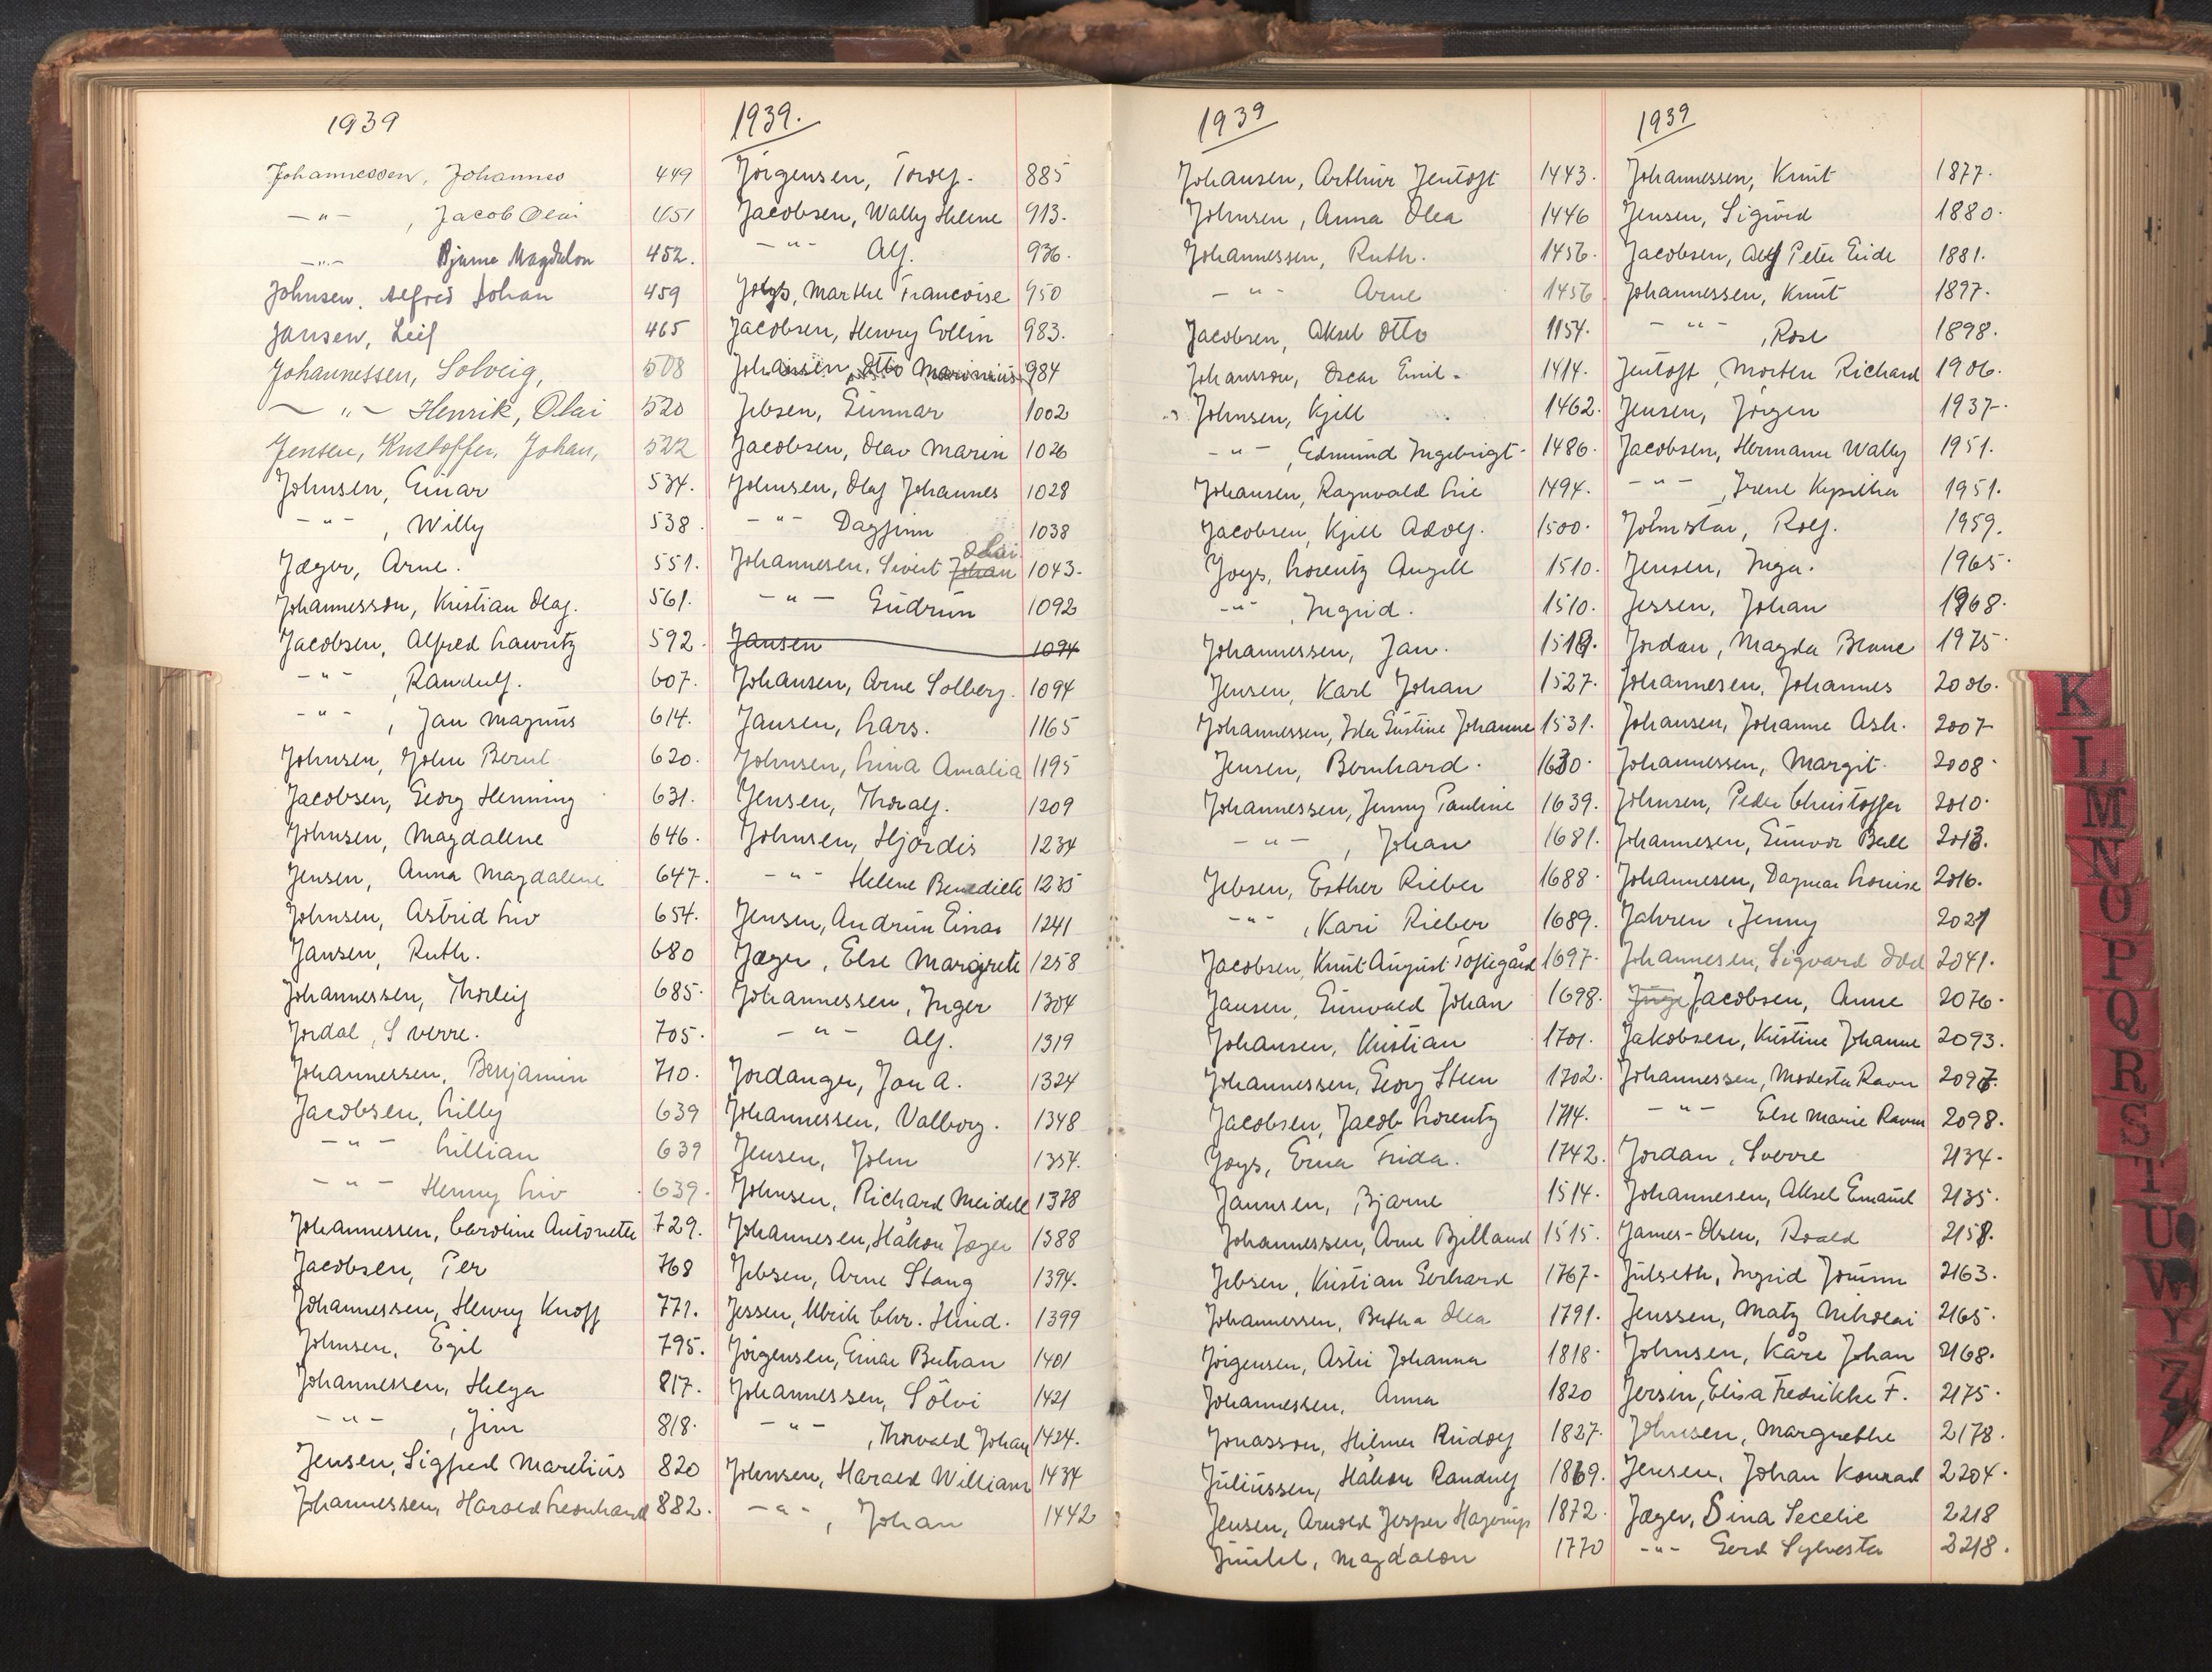 1939
Johannessen, Johannes 449
—"— , Jacob Olai 451
—"— Bjarne Magdalon 452.
Johnsen, Alfred Johan 459
Jansen, Leif 465
Johannessen, Solveig, 508
—"— Henrik, Olai 520
Jensen, Kristoffer, Johan, 522
Johnsen, Einar 534.
—"— , Willy 538.
Jæger, Arne. 551.
Johannesson, Kristian Olaf. 561.
Jacobsen, Alfred Lawritz 592.
—"— , Randulf. 607.
—"— , Jan Magnus 614.
Johnsen, John Bernt 620.
Jacobsen, Georg Henning 631.
Johnsen, Magdalene 646.
Jensen, Anna Magdalene 647.
Johnsen, Astrid Liv 654.
Jansen, Ruth. 680
Johannessen, Thorleif 685.
Jordal, Sverre. 705.
Johannessen, Benjamin 710.
Jacobsen, Lilly 639
—"— Lillian 639
—"— Henny Liv 639.
Johannessen, Caroline Antonette 729.
Jacobsen, Per 768
Johannessen, Henry Knoff 771.
Johnsen, Egil 795.
Johannessen, Helga 817.
—"— , Jim 818.
Jensen, Sigfred Marelius 820
Johannessen, Harald Leonhard 882.
1939.
Jörgensen, Torolf. 885
Jacobsen, Wally Helene 913.
—"— Alf. 936.
Joys, Marthe Francoise 950
Jacobsen, Henry Collin 983.
Johansen, Otto Marinius 984
Jebsen, Gunnar 1002
Jacobsen, Olav Marin 1026
Johnsen, Olaf Johannes 1028
—"— Dagfinn 1038
Johannesen, Sivert Johan Olai 1043.
—"— Gudrun 1092
Jansen 1094
Johansen, Arne Solberg. 1094
Jansen, Lars. 1165
Johnsen, Lina Amalia 1195
Jensen, Thoralf. 1209
Johnsen, Hjördis 1234
—"— Helene Benedicte 1235
Jensen, Andrun Einar 1241
Jæger, Else Margrete 1258
Johannessen, Inger 1304
—"— Alf. 1319
Jordanger, Jon A. 1324
Johannessen, Valborg. 1348
Jensen, John 1354.
Johnsen, Richard Meidell 1378
Johannesen, Håkon Jæger 1388
Jebsen, Arne Stang 1394.
Jessen, Ulrik Chr. Hind. 1399
Jörgensen, Einar Butran 1401
Johannessen, Sölvi 1421
—"— , Thorvald Johan 1424.
Johnsen, Harald William 1434
—"— , Johan 1442
1939
Johansen, Arthur Jentoft 1443.
Johnsen, Anna Olea 1446
Johannessen, Ruth. 1456.
—"— Arne 1456
Jacobsen, Aksel Otto 1154.
Johansson, Oscar Emil. 1414.
Johnsen, Kjell 1462.
—"— , Edmund Ingebrigt 1486.
Johansen, Ragnvald Lie 1494.
Jacobsen, Kjell Adolf. 1500.
Joys, Lorentz Angell 1510.
—"— , Ingrid. 1510.
Johannessen, Jan. 1519.
Jensen, Karl Johan 1527.
Johannessen, Ida Gustine Johanne 1531.
Jensen, Bernhard. 1630.
Johannessen, Jenny Pauline 1639.
—"— , Johan 1681.
Jebsen, Esther Rieber 1688.
—"— , Kari Rieber 1689.
Jacobsen, Knut August Toftegård 1697.
Jansen, Gunvald Johan 1698.
Johansen, Kristian 1701.
Johannessen, Georg Steen 1702.
Jacobsen, Jacob Lorentz 1714.
Joys, Erna Frida. 1742.
Jannsen, Bjarne 1514.
Johannessen, Arne Bjelland 1515.
Jebsen, Kristian Gerhard 1767.
Johannessen, Bertha Olea 1791.
Jörgensen, Astri Johanna 1818.
Johannessen, Anna 1820
Jonasson, Hilmer Rudolf 1827.
Juliussen, Håkon Randulf 1869.
Jensen, Arnold Jesper Hagerup 1872.
Juuhl, Magdalon 1770
1939
Johannessen, Knut 1877.
Jensen, Sigurd 1880.
Jacobsen, Alf Peter Eide 1881.
Johannessen, Knut 1897.
—"— , Rose 1898.
Jentoft, Morten Richard 1906.
Jensen, Jörgen 1937.
Jacobsen, Hermann Wally 1951.
—"— , Irene 1951.
Johnstar, Rolf. 1959.
Jensen, Inga. 1965.
Jessen, Johan 1968.
Jordan, Magda Brane 1975.
Johannesen, Johannes 2006.
Johansen, Johanne Asb. 2007
Johannessen, Margit. 2008.
Johnsen, Peder Christoffer 2010.
Johannesen, Gunvor Bull 2013.
Johannesen, Dagmar Louise 2016.
Jahren, Jenny 2021
Johannesen, Sigvard Odd 2041.
Jacobsen, Anne 2076.
Jakobsen, Kristine Johanne 2093.
Johannessen, Modesta Ravn 2097.
—"— Else Marie Ravn 2098.
Jordan, Sverre 2134.
Johannesen, Aksel Emanuel 2135.
James-Olsen, Roald 2158.
Julseth, Ingrid Jorunn 2163.
Jenssen, Matz Nikolai 2165.
Johnsen, Kåre Johan 2168.
Jersin, Elisa Fredrikke F. 2175.
Johnsen, Margrethe 2178.
Jensen, Johan Konrad 2204.
Jæger, Sina Secelie 2218
—"— Gerd Sylvesta 2218.
K
L
M
N
O
P
Q
R
S
T
U
W
Y
Z